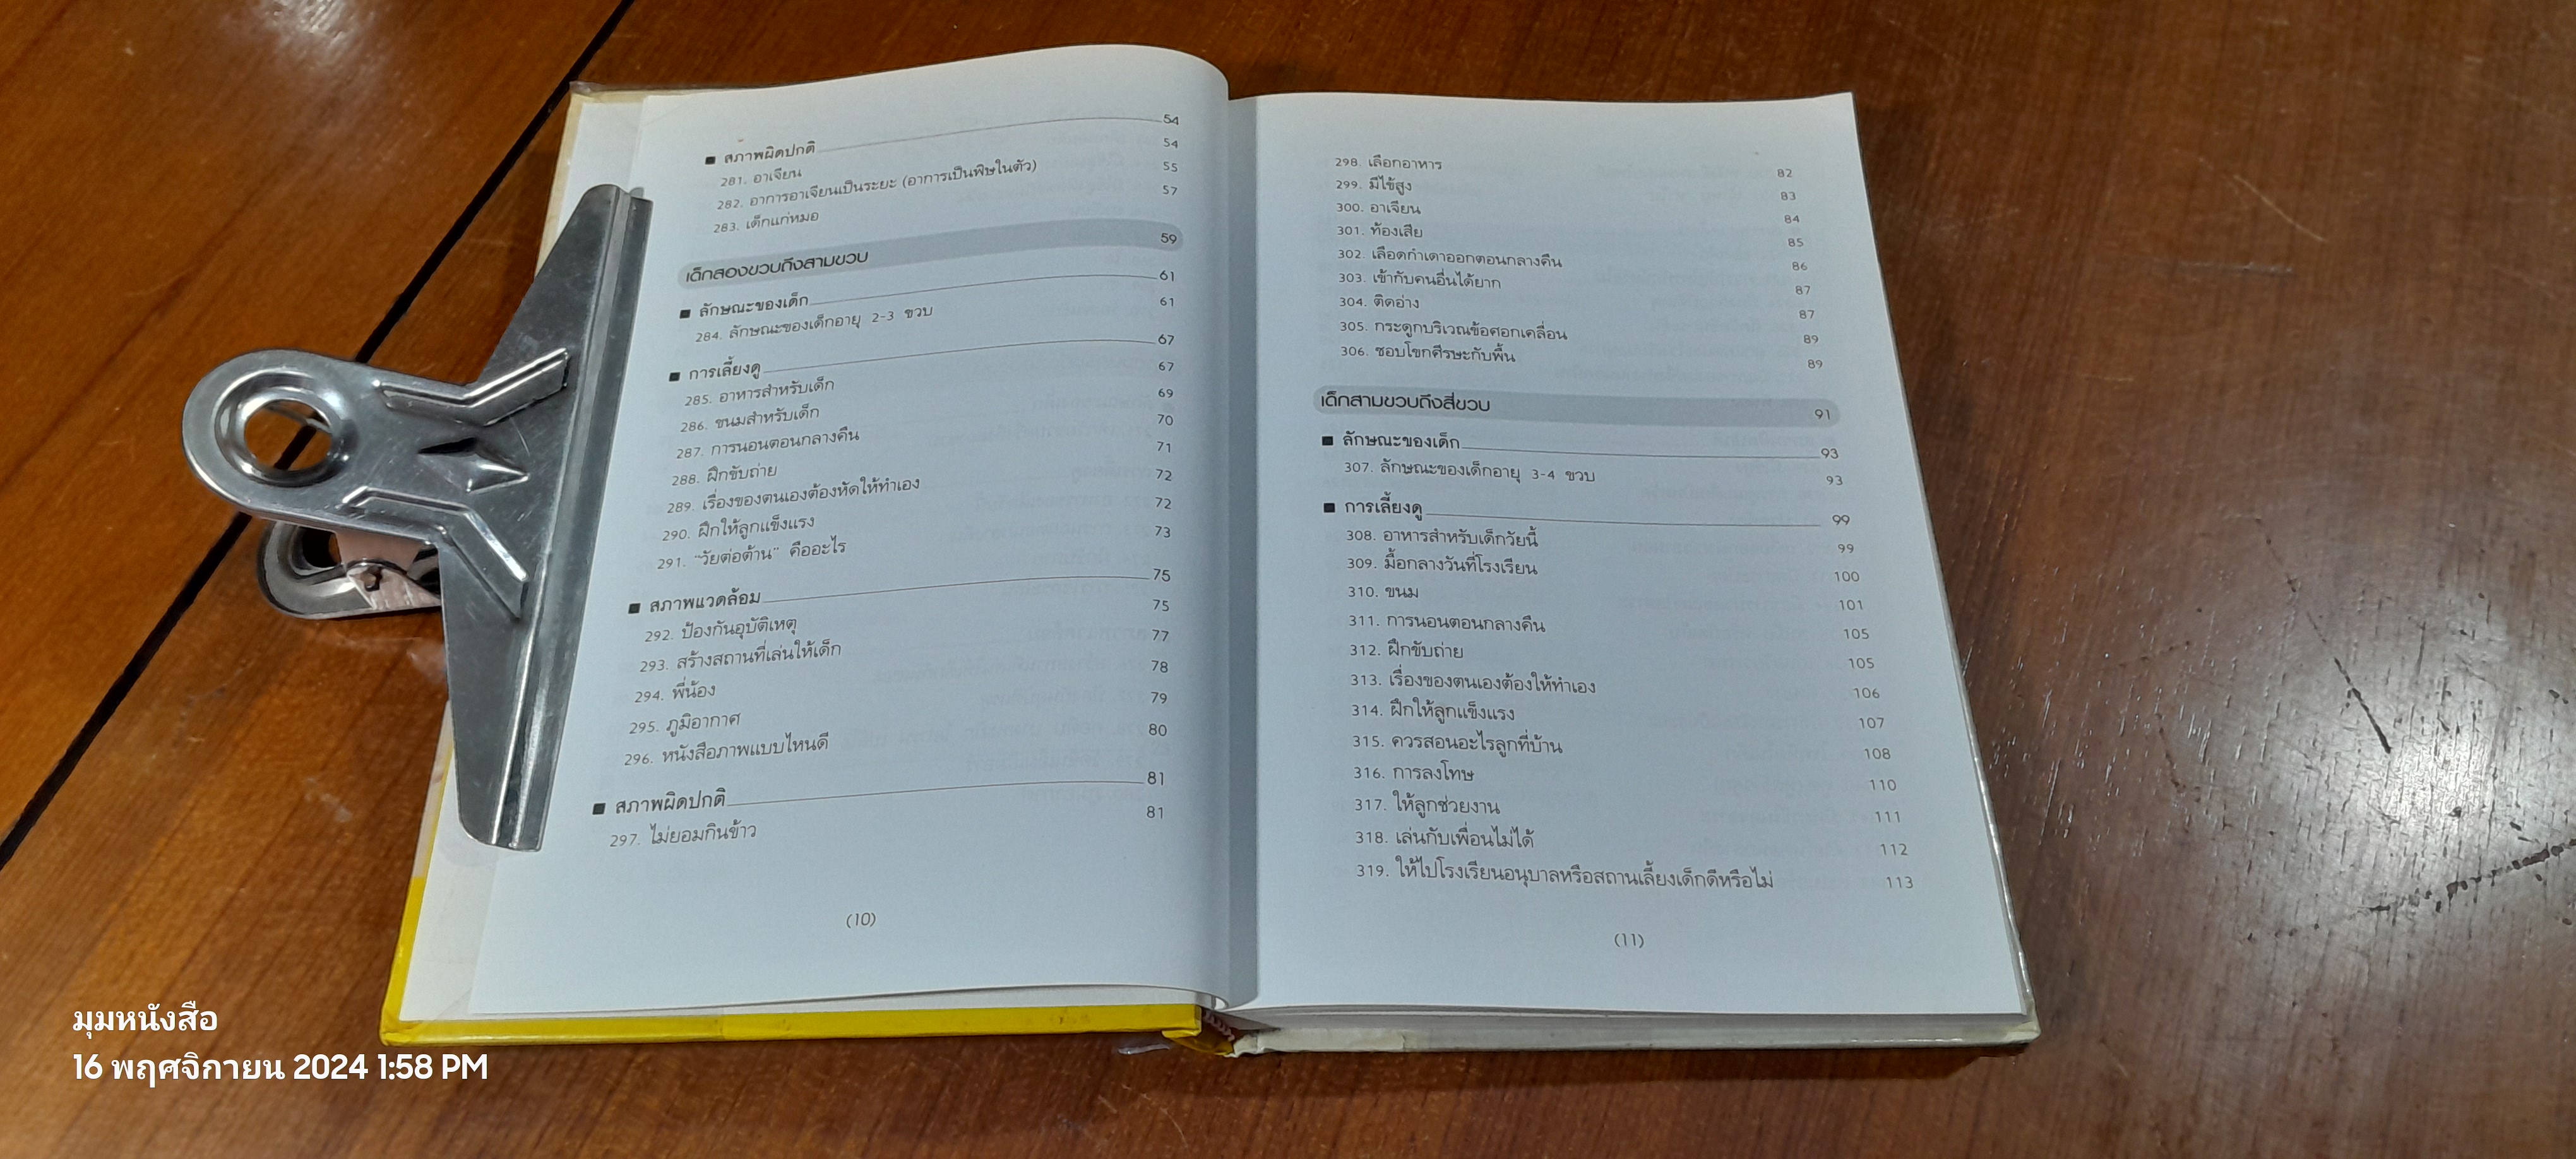 ■ สภาพผิดปกติ 54
281. อาเจียน 54
282. อาการอาเจียนเป็นระยะ (อาการเป็นพิษในตัว) 55
283. เด็กแก่หมอ 57
เด็กสองขวบถึงสามขวบ 59
■ ลักษณะของเด็ก 61
284. ลักษณะของเด็กอายุ 2-3 ขวบ 61
■ การเลี้ยงดู 67
285. อาหารสำหรับเด็ก 67
286. ขนมสำหรับเด็ก 69
287. การนอนตอนกลางคืน 70
288. ฝึกขับถ่าย 71
289. เรื่องของตนเองต้องหัดให้ทำเอง 72
290. ฝึกให้ลูกแข็งแรง 72
291. "วัยต่อต้าน" คืออะไร 73
■ สภาพแวดล้อม 75
292. ป้องกันอุบัติเหตุ 75
293. สร้างสถานที่เล่นให้เด็ก 77
294. พี่น้อง 78
295. ภูมิอากาศ 79
296. หนังสือภาพแบบไหนดี 80
■ สภาพผิดปกติ 81
297. ไม่ยอมกินข้าว 81
(10)
298. เลือกอาหาร 82
299. มีไข้สูง 83
300. อาเจียน 84
301. ท้องเสีย 85
302. เลือดกำเดาออกตอนกลางคืน 86
303. เข้ากับคนอื่นได้ยาก 87
304. ติดอ่าง 87
305. กระดูกบริเวณข้อศอกเคลื่อน 89
306. ชอบโขกศีรษะกับพื้น 89
เด็กสามขวบถึงสี่ขวบ 91
■ ลักษณะของเด็ก 93
307. ลักษณะของเด็กอายุ 3-4 ขวบ 93
■ การเลี้ยงดู 99
308. อาหารสำหรับเด็กวัยนี้ 99
309. มื้อกลางวันที่โรงเรียน 100
310. ขนม 101
311. การนอนตอนกลางคืน 105
312. ฝึกขับถ่าย 105
313. เรื่องของตนเองต้องให้ทำเอง 106
314. ฝึกให้ลูกแข็งแรง 107
315. ควรสอนอะไรลูกที่บ้าน 108
316. การลงโทษ 110
317. ให้ลูกช่วยงาน 111
318. เล่นกับเพื่อนไม่ได้ 112
319. ให้ไปโรงเรียนอนุบาลหรือสถานเลี้ยงเด็กดีหรือไม่ 113
(11)
มุมหนังสือ
16 พฤศจิกายน 2024 1:58 PM